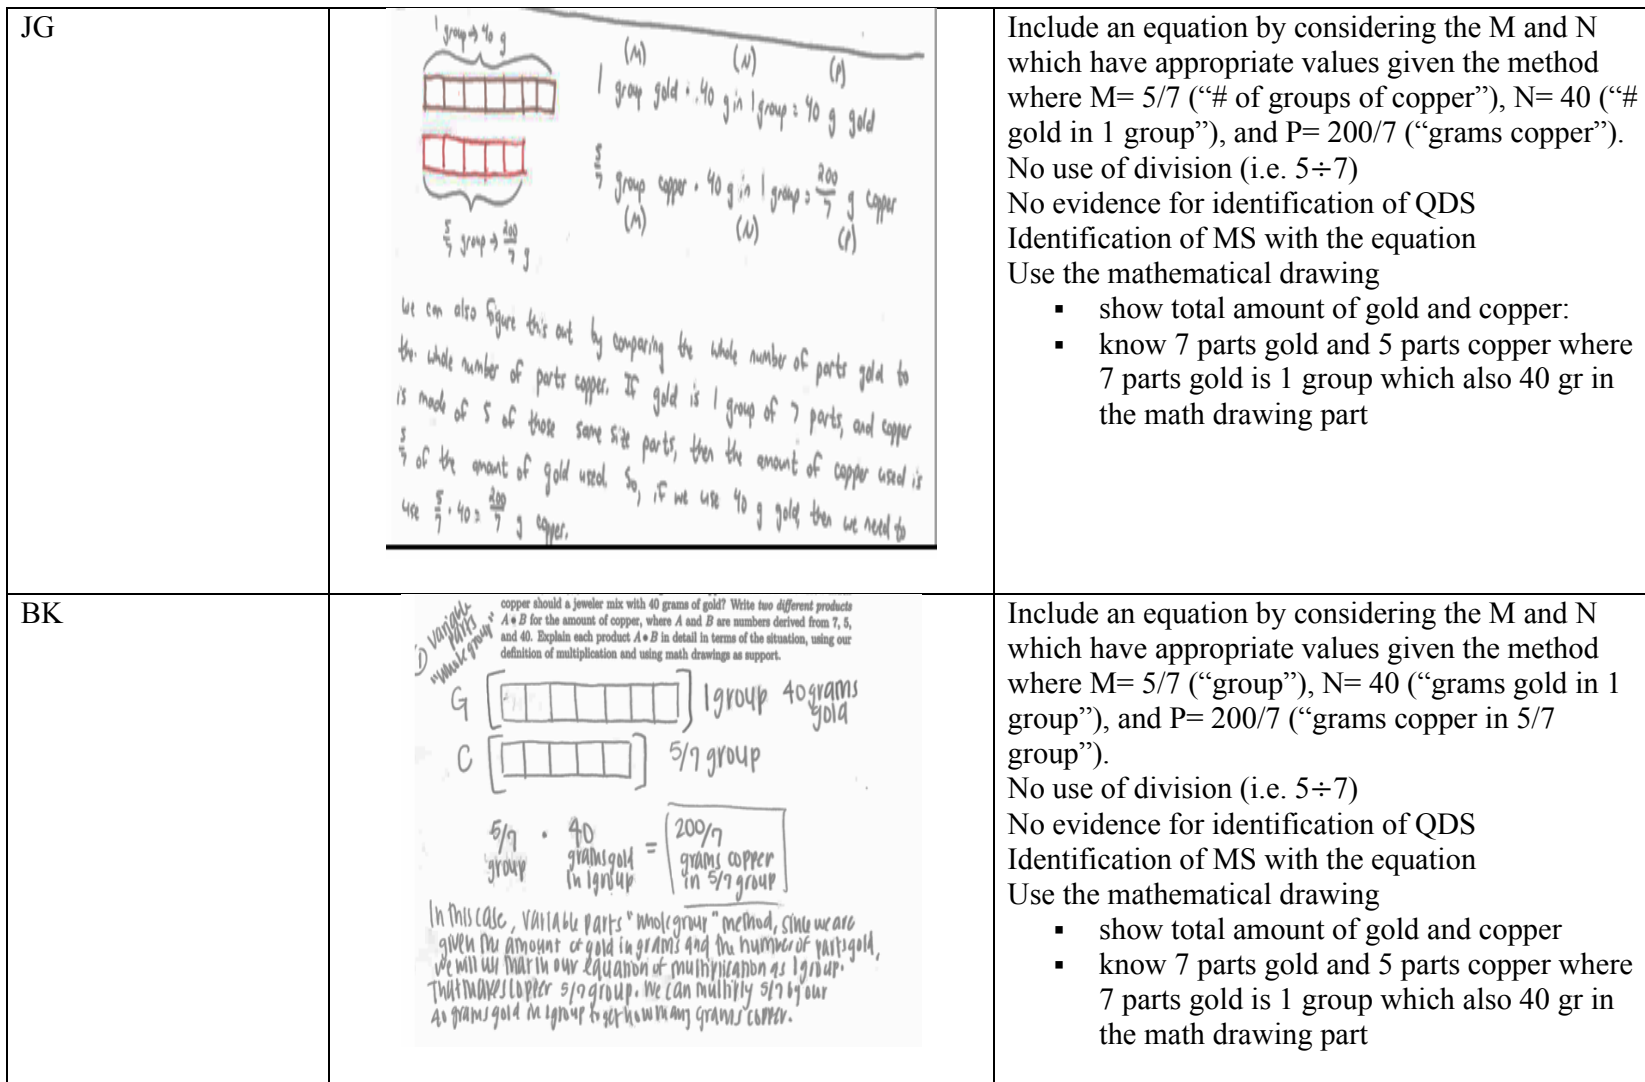 JG
1 group → 40 g
(M) (N) (P)
1 group gold · 40 g in 1 group = 40 g gold
5/7 group copper · 40 g in 1 group = 200/7 g copper
(M) (N) (P)
5/7 group → 200/7 g
we can also figure this out by comparing the whole number of parts gold to
the whole number of parts copper. If gold is 1 group of 7 parts, and copper
is made of 5 of those same size parts, then the amount of copper used is
5/7 of the amount of gold used. So, if we use 40 g gold, then we need to
use 5/7 · 40 = 200/7 g copper.
Include an equation by considering the M and N
which have appropriate values given the method
where M= 5/7 (“# of groups of copper”), N= 40 (“#
gold in 1 group”), and P= 200/7 (“grams copper”).
No use of division (i.e. 5÷7)
No evidence for identification of QDS
Identification of MS with the equation
Use the mathematical drawing
▪ show total amount of gold and copper:
▪ know 7 parts gold and 5 parts copper where
7 parts gold is 1 group which also 40 gr in
the math drawing part
BK
1) variable
parts
"whole group"
copper should a jeweler mix with 40 grams of gold? Write two different products
A • B for the amount of copper, where A and B are numbers derived from 7, 5,
and 40. Explain each product A • B in detail in terms of the situation, using our
definition of multiplication and using math drawings as support.
G 1 group 40 grams
gold
C 5/7 group
5/7 · 40 = 200/7
group grams gold grams copper
in 1 group in 5/7 group
In this case, variable parts "whole group" method, since we are
given the amount of gold in grams and the number of parts gold,
we will use that in our equation of multiplication as 1 group.
That makes copper 5/7 group. We can multiply 5/7 by our
40 grams gold in 1 group to get how many grams copper.
Include an equation by considering the M and N
which have appropriate values given the method
where M= 5/7 (“group”), N= 40 (“grams gold in 1
group”), and P= 200/7 (“grams copper in 5/7
group”).
No use of division (i.e. 5÷7)
No evidence for identification of QDS
Identification of MS with the equation
Use the mathematical drawing
▪ show total amount of gold and copper
▪ know 7 parts gold and 5 parts copper where
7 parts gold is 1 group which also 40 gr in
the math drawing part